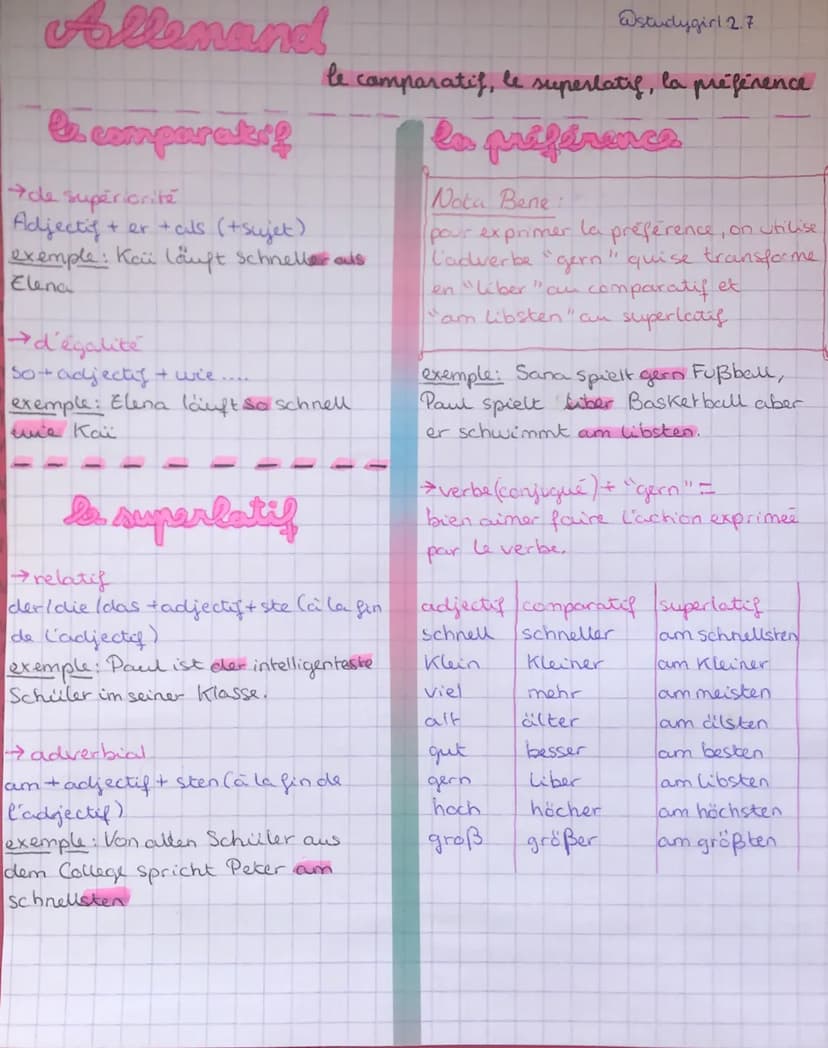 Allemand
@studygirl2.7
le comparatif, le superlatif, la préférence
le comparatif
→de supériorité
Adjectif + er + als (+sujet)
exemple: Kaï läuft schneller als
Elena
→d'égalité
so + adjectif + wie ....
exemple: Elena läuft so schnell
wie Kaï
le superlatif
→relatif
der/die/das +adjectif + ste (à la fin
de l'adjectif)
exemple: Paul ist der intelligenteste
Schüler im seiner Klasse.
→ adverbial
am + adjectif + sten (à la fin de
l'adjectif)
exemple: Von allen Schüler aus
dem College spricht Peter am
schnellsten
la préférence
Nota Bene:
pour exprimer la préférence, on utilise
l'adverbe "gern" qui se transforme
en "liber" au comparatif et
"am libsten" au superlatif
exemple: Sana spielt gern Fußball,
Paul spielt liber Basketball aber
er schwimmt am libsten.
→verbe (conjugué) + "gern" =
bien aimer faire l'action exprimée
par le verbe.
adjectif comparatif superlatif
schnell schneller am schnellsten
Klein Kleiner am Kleiner
viel mehr am meisten
alt älter am älsten
gut besser am besten
gern liber am libsten
hoch höcher am höchsten
groß größer am größten